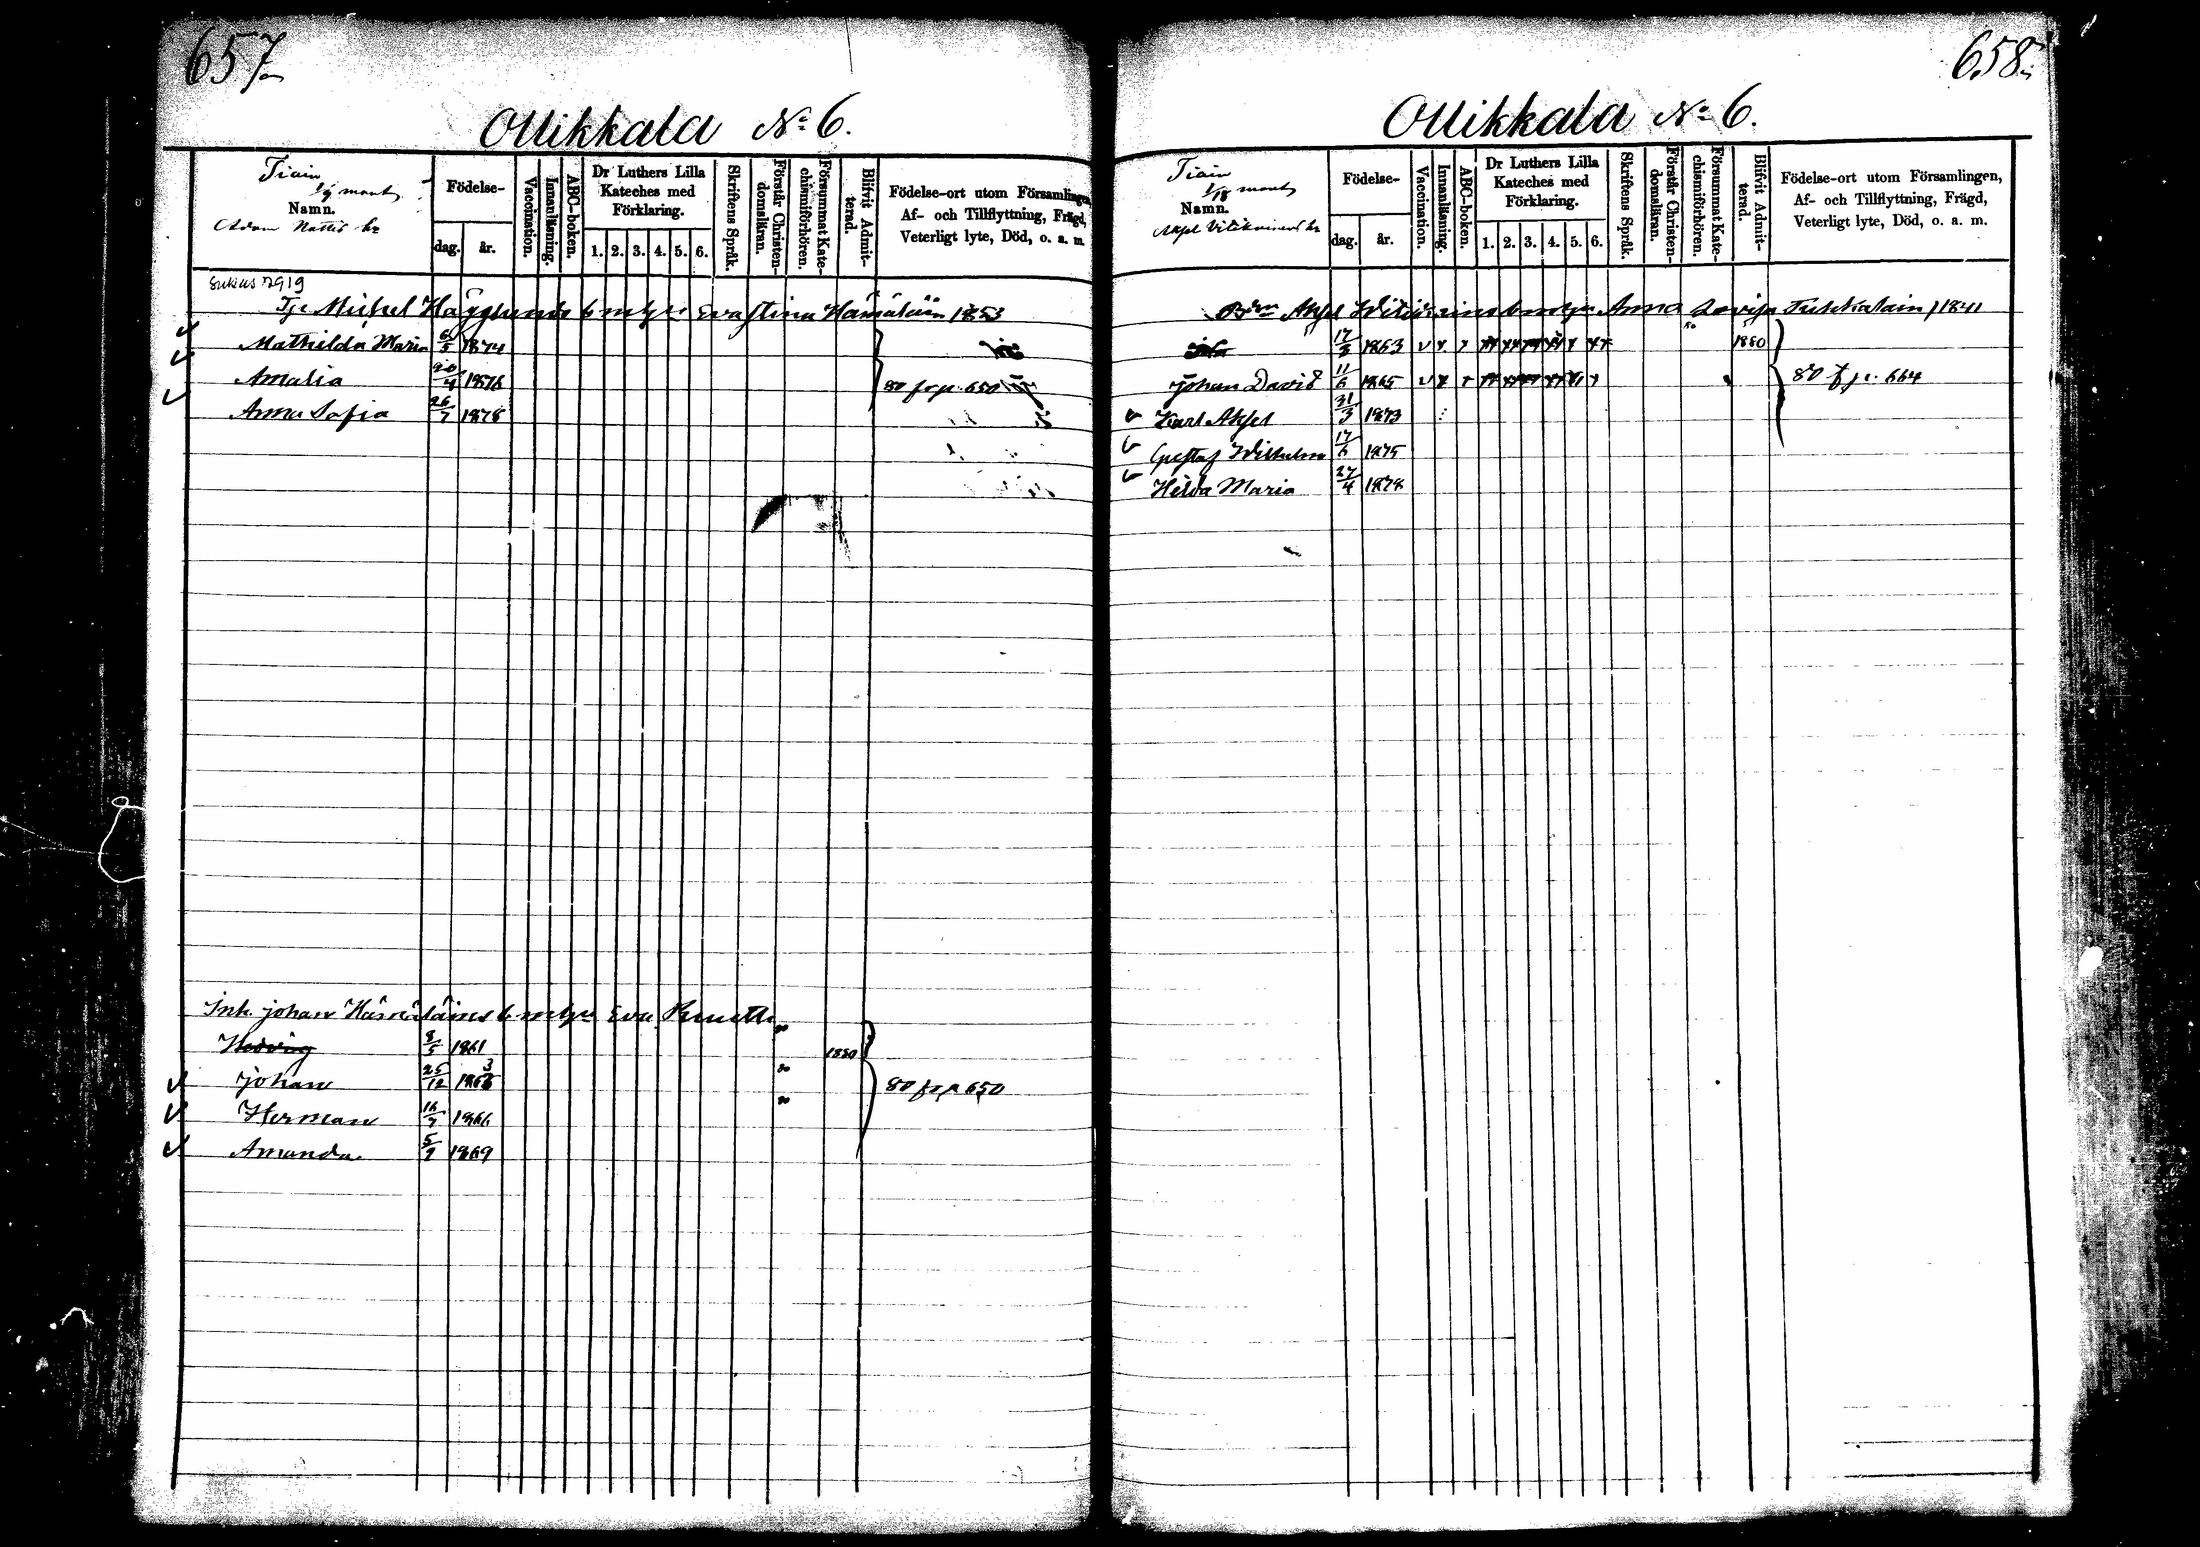 657
Ollikkala No 6.
Tiain
1/9 mant
Namn.
Adam Nattis hr
Födelse-
dag. år.
Vaccination.
Innanläsning.
ABC-boken.
Dr Luthers Lilla
Kateches med
Förklaring.
1. 2. 3. 4. 5. 6.
Skriftens Språk.
Förstår Christen-
domsläran.
Försummat Kate-
chismiförhören.
Blifvit Admit-
terad.
Födelse-ort utom Församlingen,
Af- och Tillflyttning, Frägd,
Veterligt lyte, Död, o. a. m.
2919
Michel Hägglunds b m hu Eva Stina Hämäläin 1853
Mathilda Maria 6/5 1874
Amalia 20/4 1876 80 f p. 650
Anna Sofia 26/7 1878
Inh. Johan Hämäläins b m hu Eva
Hedvig 8/5 1861 1880
Johan 25/12 1863
80 fr p 650
Herman 16/7 1866
Amanda 5/9 1869
658
Ollikkala No 6.
Tiain
1/18 mant
Namn.
Axel Vitikainens hr
Födelse-
dag. år.
Vaccination.
Innanläsning.
ABC-boken.
Dr Luthers Lilla
Kateches med
Förklaring.
1. 2. 3. 4. 5. 6.
Skriftens Språk.
Förstår Christen-
domsläran.
Försummat Kate-
chismiförhören.
Blifvit Admit-
terad.
Födelse-ort utom Församlingen,
Af- och Tillflyttning, Frägd,
Veterligt lyte, Död, o. a. m.
Axel Witikainens b m hu Anna Lovisa 1841
17/3 1863 1880
Johan David 11/6 1865 80 f p. 664
Karl Axel 31/3 1873
Gustaf Wilhelm 17/6 1875
Hilda Maria 27/4 1878